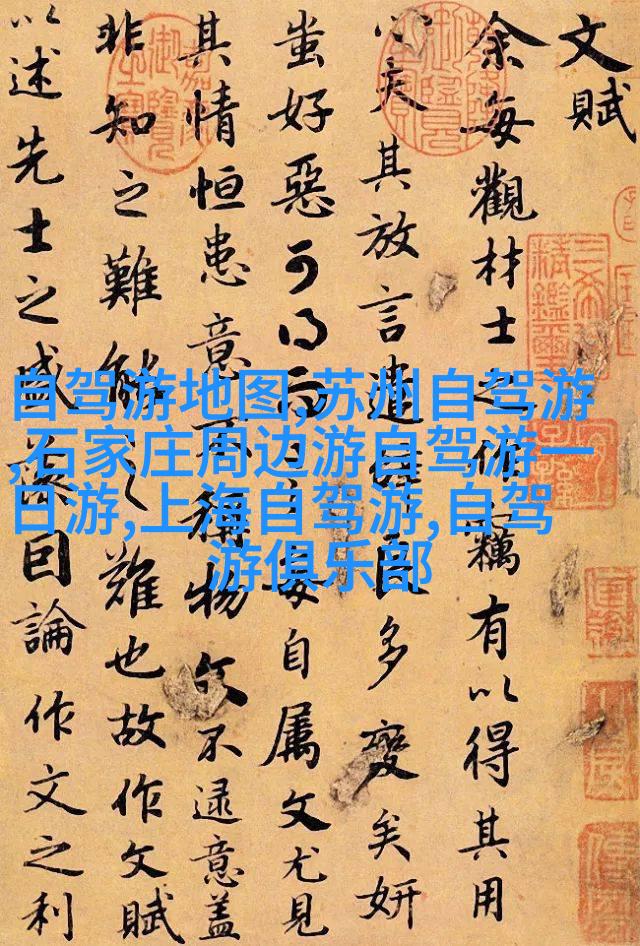 文賦
余每觀材士之作竊有以得其用
心夫其放言遣辭良多變矣妍
蚩好惡可得而言每自属文尤見
其情恒患意不稱物文不逮意蓋
非知之難能之難也故作文賦
以述先士之盛藻因論作文之利
自驾游地图,苏州自驾游
,石家庄周边游自驾游一
日游,上海自驾游,自驾
游俱乐部